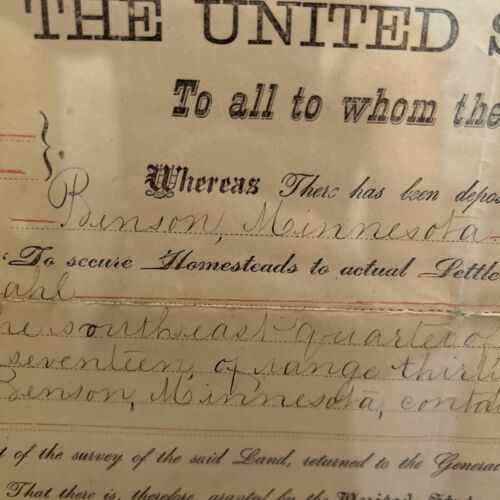 THE UNITED S
To all to whom the
Whereas There has been depos
Benson, Minnesota
"To secure Homesteads to actual Settle
ahl
he southeast quarter of
seventeen, of range thirt
Benson, Minnesota, conta
t of the survey of the said Land, returned to the Genera
That there is, therefore, granted by the United Stat